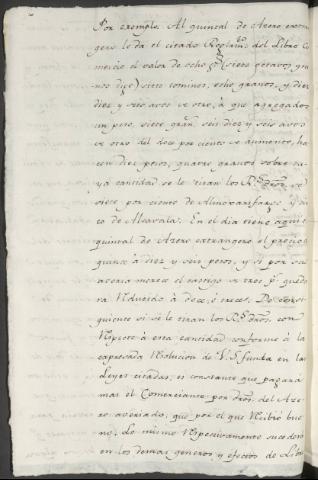 Por exemplo. Al quintal de Azero extran
gero le da el citado Reglam.to del Libre Co
mercio el valor de ocho p.s siete
siete tomines, ocho granos, y diez
diez y seis avos de otro, à que agregados
un peso, siete gran.s seis diez y seis avos
de otro del doce por ciento de aumento, ha
cen diez pesos, quatro granos sobre cu
ya cantidad se le tiran los R.s dros. de
siete por ciento de Almoxarifazgo y
co de Alcavala. En el dia tiene aqui el
quintal de Azero extrangero el precio de
quince à diez y seis pesos, y si por su
averia merece el castigo de tres p.s queda
ra reducido à doce, ò trece. De consi
guiente si se le tiran los R.s dros. con
respecto à esta cantidad conforme à la
expresada resolucion de V.S. funda en las
Leyes citadas, es constante que pagara
mas el Comerciante por dros. del Aze
ro averiado, que por el que recibió bue
no. Lo mismo respectivamente sucederà
en los demas generos, y efectos de Libre